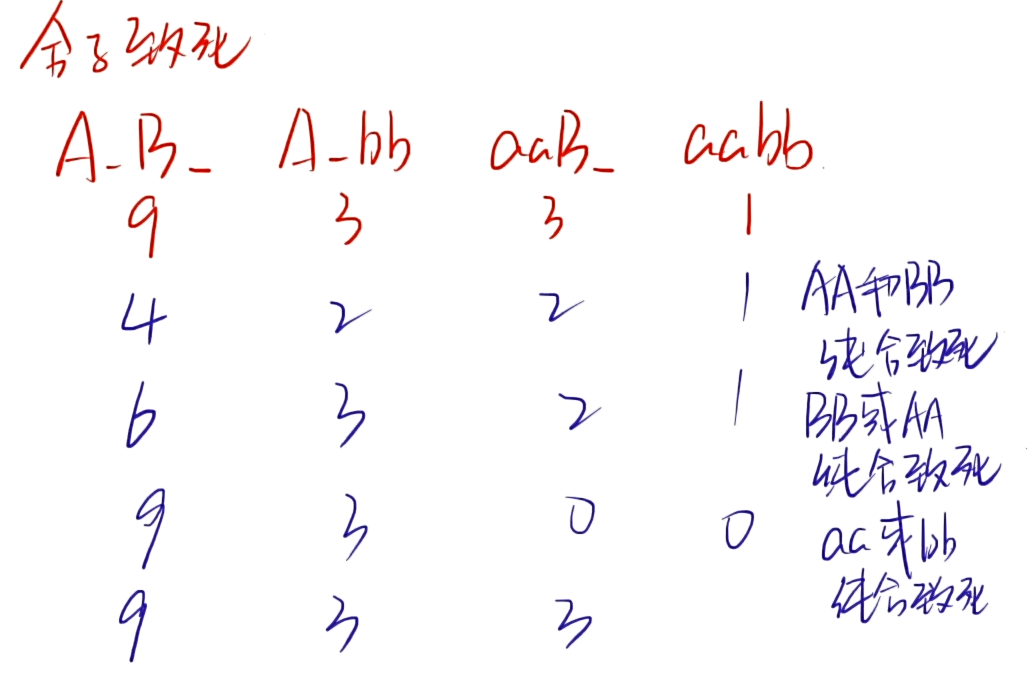 合子致死
A_B_ A_bb aaB_ aabb
9 3 3 1
4 2 2 1 AA和BB
纯合致死
6 3 2 1 BB或AA
纯合致死
9 3 0 0 aa或bb
纯合致死
9 3 3